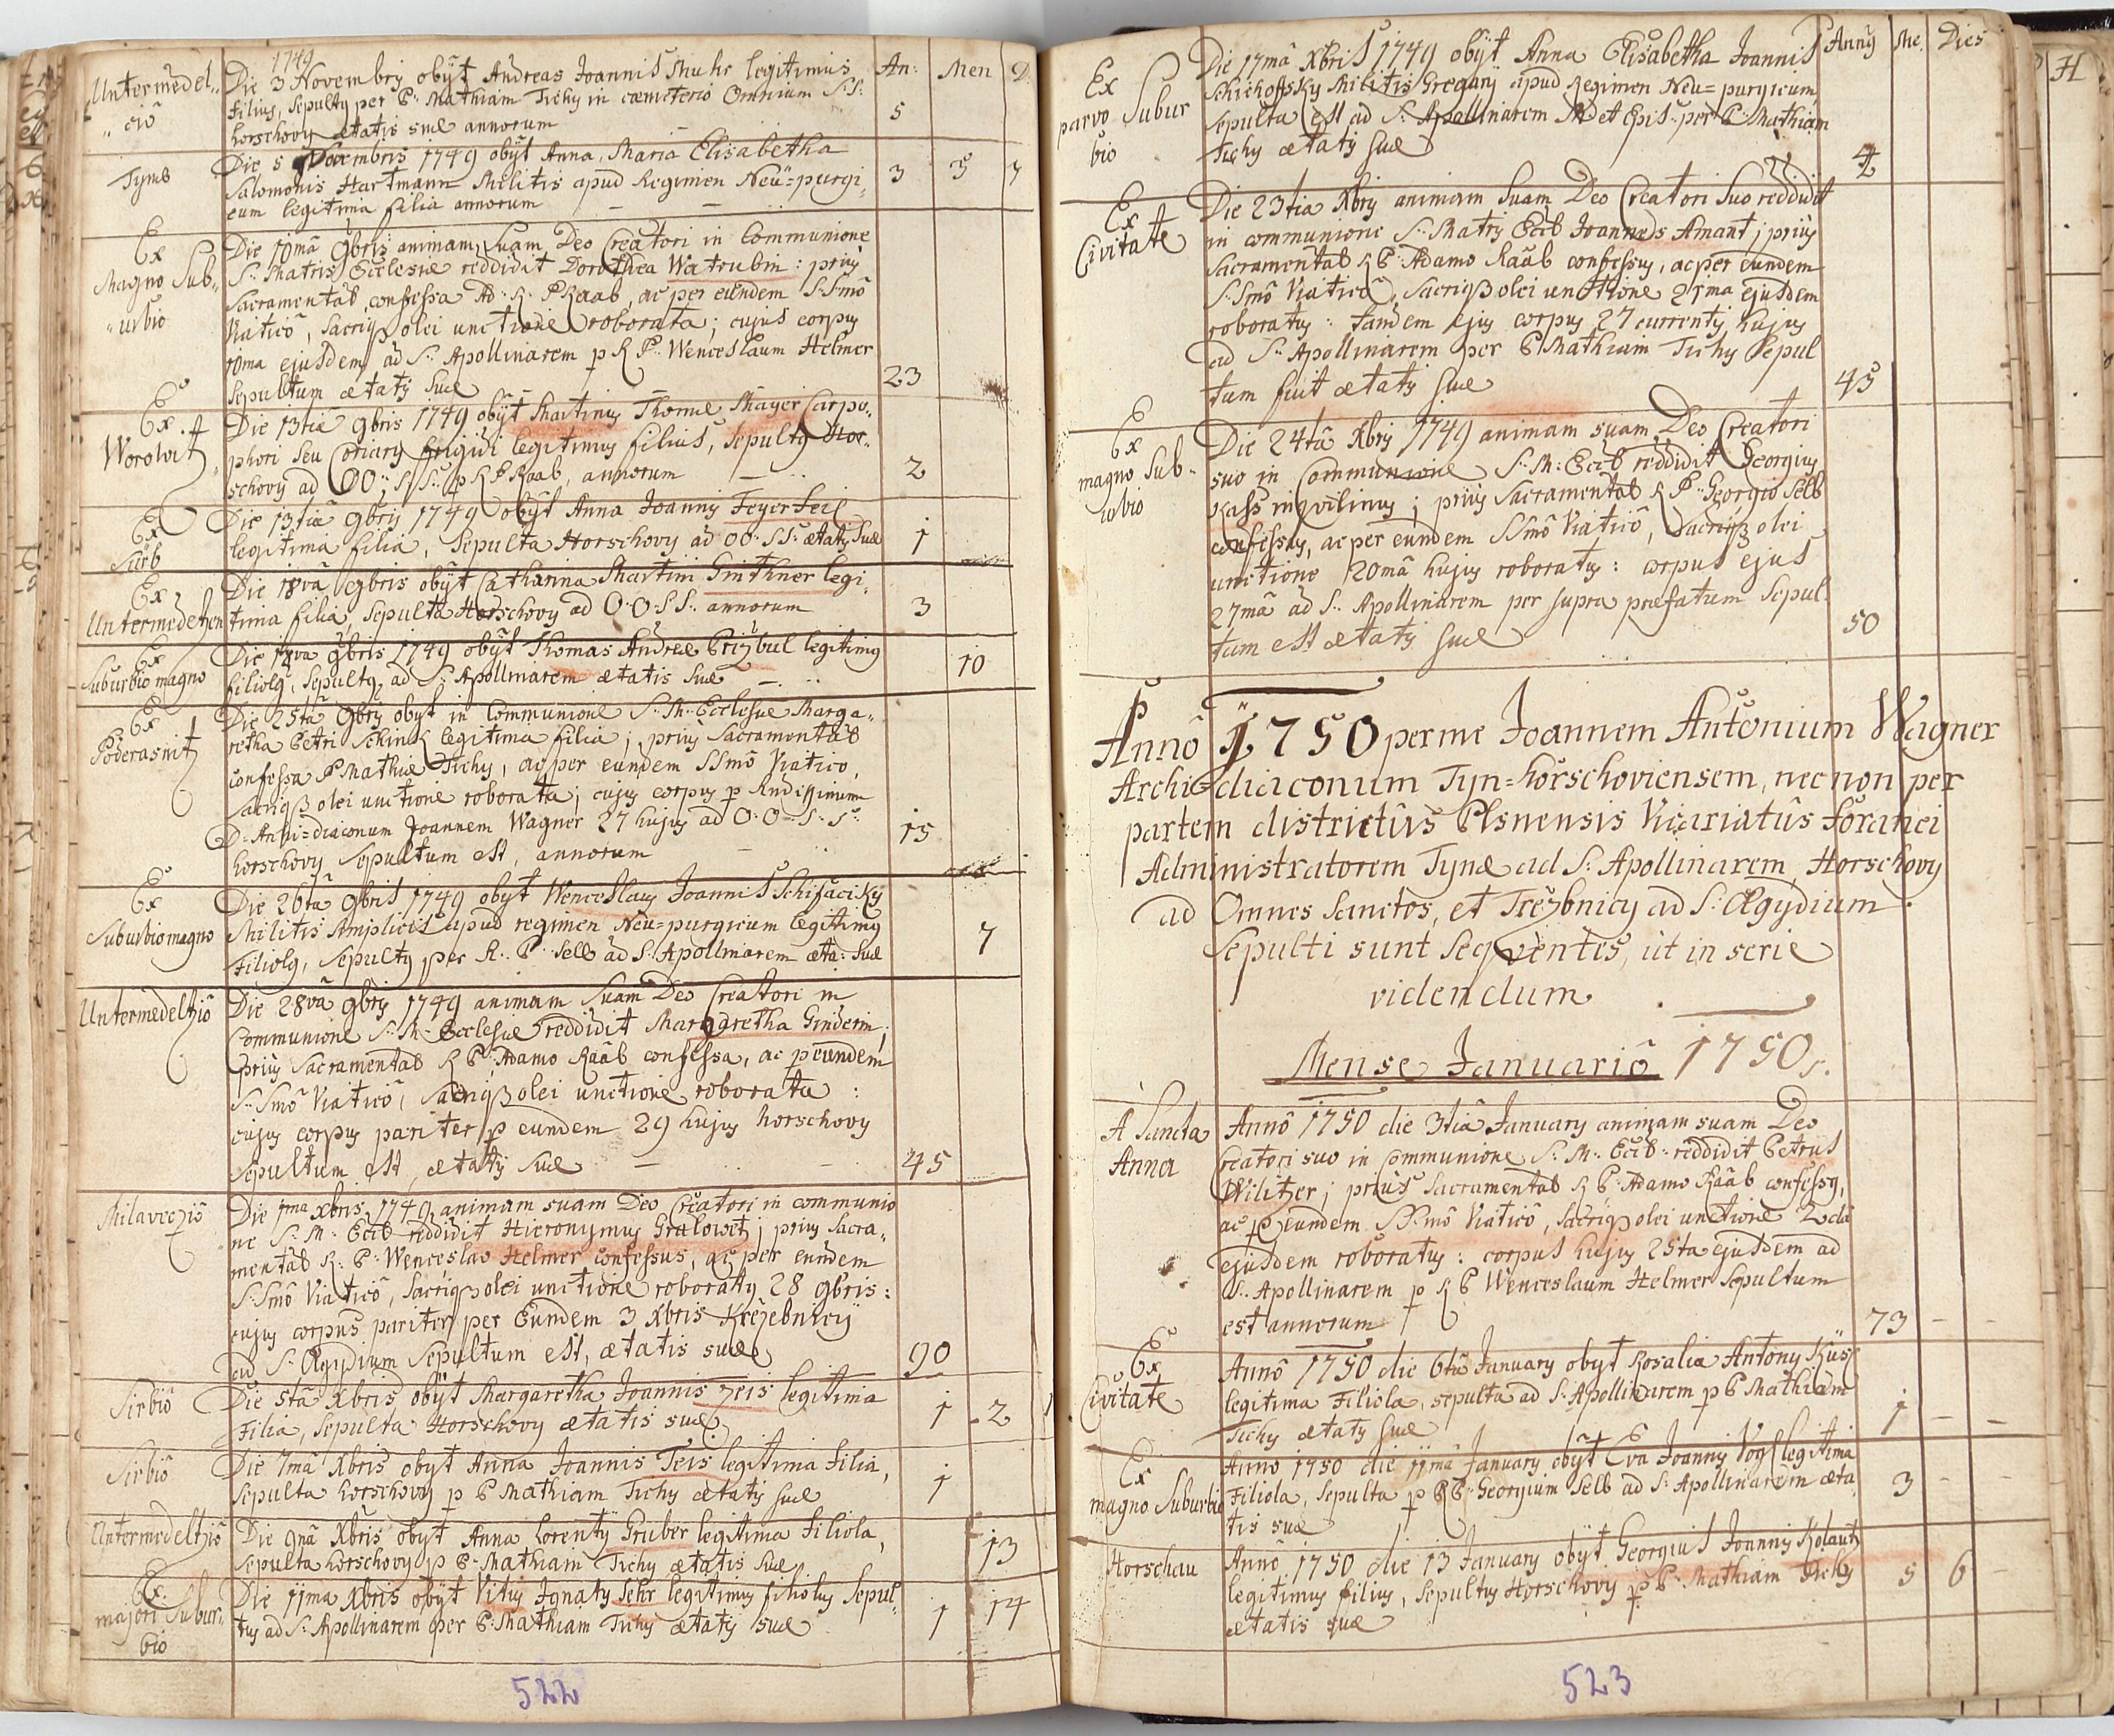 1749
An: Men D.
Untermedel„
„ciô
Die 3 Novembrÿ obÿt Andreas Joannis Muhr legitimus
filius, sepultg per P. Mathiam Tichy in cœmeterio Omnium S:S:
Horschovÿ ætatis suæ annorum
5
Tynæ
Die 5 Novembris 1749 obÿt Anna Maria Elisabetha
Salomonis Hartmann Militis apud Regimen Neü=purgi„
cum legitima filia annorum
3 5 7
Ex
Magno Sub„
„urbio
Die 10mâ 9bris animam Suam Deo Creatori in Communione
S: Matris Ecclesiæ reddidit Dorothea Watrubin: priÿ
Sacramental confessa Ad: R: P Raab, ac per eundem S.Smô
Viaticô, Sacriqβ olei unctione roborata; cujus corpus
10ma ejusdem ad S: Apollinarem p R P: Wenceslaum Helmer
Sepultum ætatÿ suæ
23
Ex
Worowit
Die 13tiâ 9bris 1749 obÿt Martinÿ Thomæ Mayer Carpo„
phori seu Coriarÿ frigidi legitimus filius, Sepultÿ Hor„
schovÿ ad OO: S:S: p R P Raab, annorum
2
Ex
Sürb
Die 13tiâ 9brÿ 1749 obÿt Anna Joannÿ Feyerfeil
legitima filia, Sepulta Horschovÿ ad OO: SS: ætatÿ suæ
1
Ex
Untermedetzen
Die 18vâ 9bris obÿt Catharina Martini Gnithner legi„
tima filia, Sepulta Horschovÿ ad O:O:S S: annorum
3
Ex
Suburbio magno
Die 14va 9bris 1749 obÿt Thomas Andreæ Przibul legitimÿ
filiolg, Sepultg ad S: Apollinarem ætatis suæ
10
Ex
Poderasnitz
Die 25tâ 9brÿ obÿt in Communione S: M: Ecclesiæ Marga„
retha Petri Schink legitima filia; priÿ Sacramental
confessa P Mathiæ Tichy, ac per eundem SSmô Viatico,
Sacriqβ olei unctione roborata; cujus corpus p Rndissimum
D: Archi=diaconum Joannem Wagner 27 hujus ad O:O: S:S:
Horschovÿ Sepultum est, annorum
15
Ex
Suburbio magno
Die 26tâ 9bris 1749 obÿt Wenceslaus Joannis Schisaciky
Militis simplicis apud regimen Neu=purgicum legitimÿ
Filiolg, Sepultÿ per R: P: Selb ad S: Apollinarem æta: suæ
7
Untermedeltziô
Die 28vâ 9brÿ 1749 animam Suam Deo Creatori in
Communione S: M: Ecclesiæ reddidit Margaretha Ginderin;
priÿ Sacramental R P: Adamo Raab confessa, ac p eundem
S:Smô Viaticô, Sacriqβ olei unctione roborata:
cujus corpus pariter p eundem 29 hujus Horschovÿ
Sepultum est, ætatÿ suæ
45
Milavecziô
Die 1ma xbris 1749 animam suam Deo Creatori in communio
ne S: M: Eccl reddidit Hieronymus Gralowetz; priÿ Sacra„
mental R: P: Wenceslao Helmer confessus, ac per eundem
S:Smô Viaticô, Sacriqβ olei unctione roboratÿ 28 9bris:
cujus corpus pariter per Eundem 3 Xbris Krzebnicÿ
ad S: Ægydium Sepultum est, ætatis suæ
90
Sirbiô
Die 5tâ Xbris obÿt Margaretha Joannis Zeis legitima
Filia, Sepulta Horschovÿ ætatis suæ
1 2 1
Sirbiô
Die 7mâ Xbris obÿt Anna Joannis Teis legitima filia,
Sepulta Horschovÿ p P Mathiam Tichy ætatÿ suæ
1
Untermedeltziô
Die 9nâ Xbris obÿt Anna Lorentÿ Gruber legitima filiola,
Sepulta Horschovÿ p P: Mathiam Tichy ætatis suæ
13
Ex
majori Subur„
bio
Die 11ma Xbris obÿt Vitus Ignatÿ Sehr legitimus filiolus sepul„
tus ad S: Apollinarem per P: Mathiam Tichy ætatÿ suæ
1 14
522
Annÿ Me. Dies
Ex
parvo Subur
bio
Die 17mâ Xbris 1749 obÿt Anna Elisabetha Joannis
Schichofsky Militis Gregarÿ apud Regimen Neu=purgicum
sepulta est ad S: Apollinarem M et Epis: per P: Mathiam
Tichy ætatÿ suæ
4
Ex
Civitate
Die 23tia Xbrÿ animam Suam Deo Creatori Suo reddidit
in communione S: Matrÿ Eccl Joannes Amant; priÿ
Sacramental R P: Adamo Raab confessus, ac per eundem
S:Smô Viaticô, Sacriqβ olei unctione 21ma ejusdem
roboratus: tandem ejus corpus 27 currentÿ hujus
ad S: Apollinarem per P Mathiam Tichy Sepul
tum fuit ætatÿ suæ
45
Ex
magno Sub„
urbio
Die 24tâ Xbrÿ 1749 animam suam Deo Creatori
suo in Communione S: M: Eccl reddidit Georgius
Kass inqvilinus; priÿ Sacramental R P: Georgio Selb
confessus, ac per eundem SSmô Viaticô, Sacriqβ olei
unctione 20mâ hujus roboratus: corpus ejus
27mâ ad S: Apollinarem per supra præfatum Sepul„
tum est ætatÿ suæ
50
Annô 1750 per me Joannem Antonium Wagner
Archi=diaconum Tyn=Horschoviensem, nec non per
partem districtûs Plsnensis Vicariatûs foranei
Administratorem Tynæ ad S: Apollinarem, Horschovÿ
ad Omnes Sanctos, et Trezbnicÿ ad S: Ægydium
Sepulti sunt seqventes, ut in serie
videndum.
Mense Januariô 1750.
A Sancta
Anna
Annô 1750 die 3tiâ Januarÿ animam suam Deo
Creatori suo in Communione S: M: Eccl: reddidit Petrus
Wilitzer; priùs Sacramental R P: Adamo Raab confessg,
ac p eundem SS:mô Viaticô, Sacriqβ olei unctione 2cdâ
ejusdem roboratus: corpus hujus 25ta ejusdem ad
S: Apollinarem p R P Wenceslaum Helmer Sepultum
est annorum
73 – –
Ex
Civitate
Annô 1750 die 6tâ Januarÿ obÿt Rosalia Antonÿ Küs
legitima Filiola, sepulta ad S: Apollinarem p P Mathiam
Tichy ætatÿ suæ
1 – –
Ex
magno Suburbio
Annô 1750 die 11mâ Januarÿ obÿt Eva Joannÿ Vogl legitima
Filiola, Sepulta p R P: Georgium Selb ad S: Apollinarem æta
tis suæ
3 – –
Horschau
Annô 1750 die 13 Januarÿ obÿt Georgius Joannis Kolautz
legitimus filius, Sepultus Horschovÿ p P: Mathiam Tichy
ætatis suæ
5 6 –
523